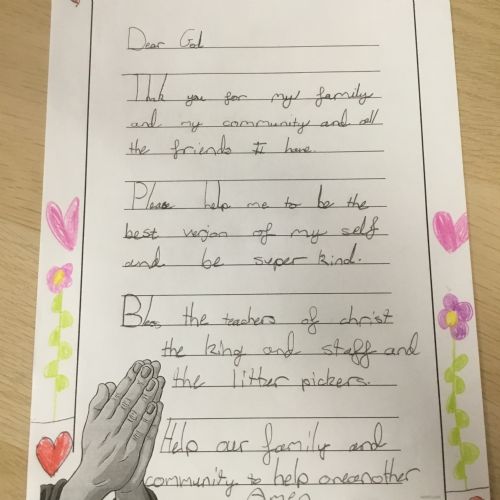 Dear God
Thak you for my family
and my community and all
the friends I have.
Please help me to be the
best verion of my self
and be super kind.
Bless the teachers of christ
the king and staff and
the litter pickers.
Help our family and
community to help oneanother
Amen